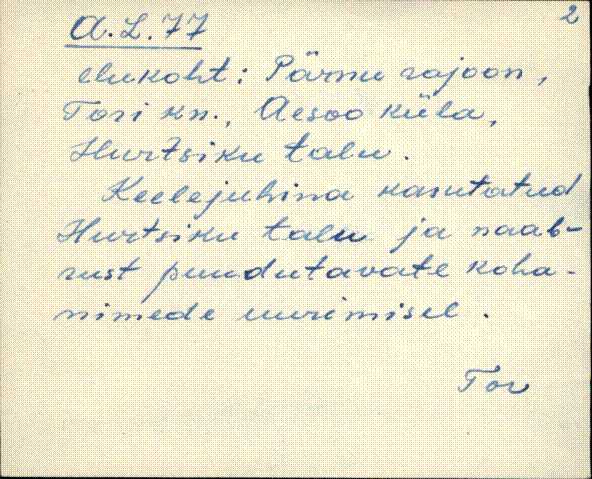 2
A.L.77
elukoht: Pärnu rajoon,
Tori kn., Aesoo küla,
Hurtsiku talu.
Keelejuhina kasutatud
Hurtsiku talu ja naab-
rust puudutavate koha-
nimede uurimisel.
Tor